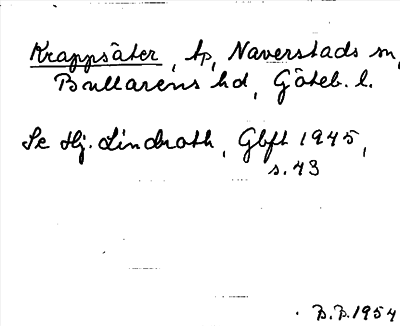 Krappsäter, tp, Naverstads sn,
Bullarens hd, Göteb. l.
Se Hj. Lindroth, Gbft 1945,
s. 43
B.B. 1954